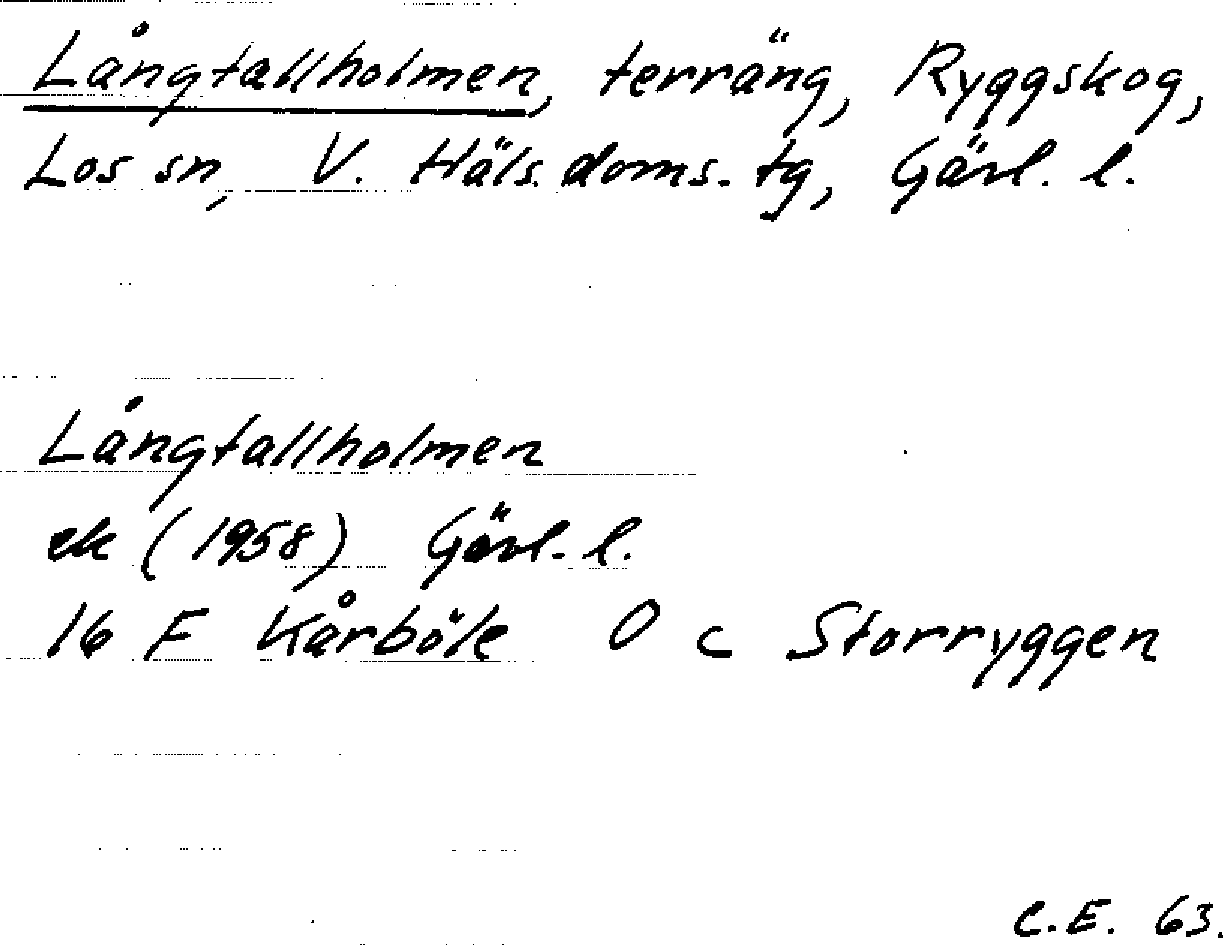 Långtallholmen, terräng, Ryggskog,
Los sn, V. Häls. doms. tg, Gävl. l.
Långtallholmen
ek (1958) Gävl. l.
16 F Kårböle O c Storryggen
C.E. 63.